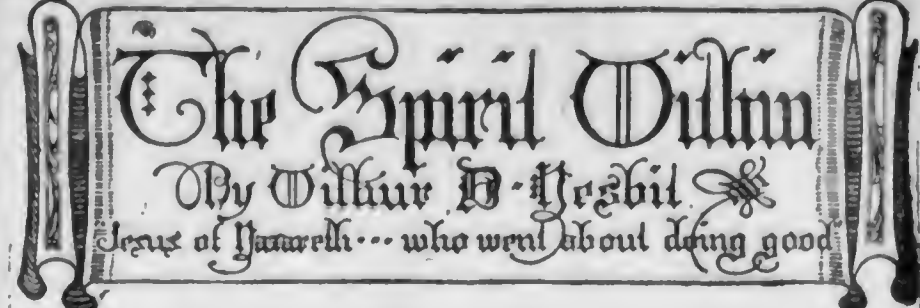 The Spirit Within
By Wilbur D. Nesbit
Jesus of Nazareth... who went about doing good